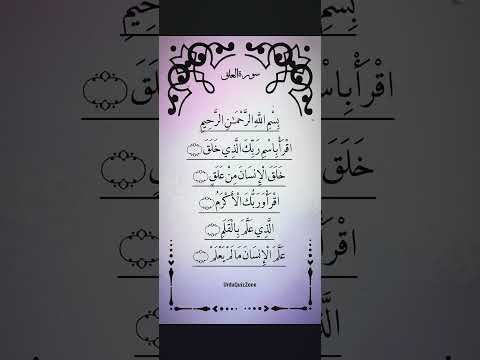 سورة العلق
بِسْمِ اللَّهِ الرَّحْمَٰنِ الرَّحِيمِ
اقْرَأْ بِاسْمِ رَبِّكَ الَّذِي خَلَقَ
خَلَقَ الْإِنسَانَ مِنْ عَلَقٍ
اقْرَأْ وَرَبُّكَ الْأَكْرَمُ
الَّذِي عَلَّمَ بِالْقَلَمِ
عَلَّمَ الْإِنسَانَ مَا لَمْ يَعْلَمْ
UrduQuizZone